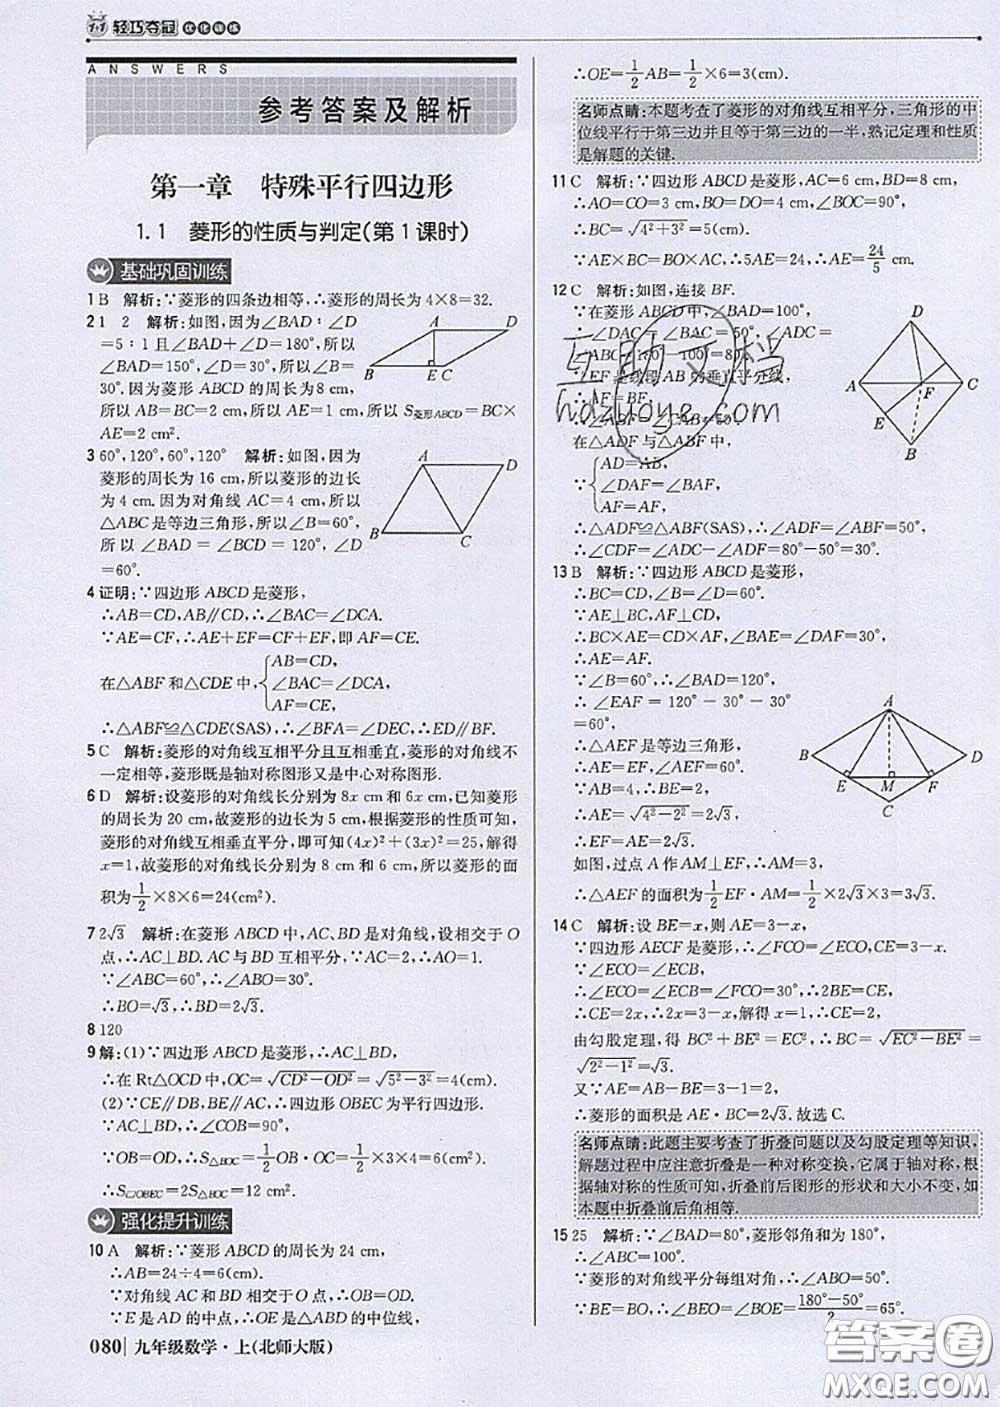 1+1 轻巧夺冠 优化训练
ANSWERS
参考答案及解析
第一章 特殊平行四边形
1.1 菱形的性质与判定(第1课时)
基础巩固训练
1 B 解析:∵菱形的四条边相等,∴菱形的周长为4×8=32.
2 1 2 解析:如图,因为∠BAD∶∠D
=5∶1且∠BAD+∠D=180°,所以
∠BAD=150°,∠D=30°,所以∠B=
30°.因为菱形ABCD的周长为8 cm,
所以AB=BC=2 cm,所以AE=1 cm,所以S菱形ABCD=BC×
AE=2 cm².
A D B E C
3 60°,120°,60°,120° 解析:如图,因为
菱形的周长为16 cm,所以菱形的边长
为4 cm.因为对角线AC=4 cm,所以
△ABC是等边三角形,所以∠B=60°,
所以∠BAD=∠BCD=120°,∠D
=60°.
A D B C
4 证明:∵四边形ABCD是菱形,
∴AB=CD,AB∥CD,∴∠BAC=∠DCA.
∵AE=CF,∴AE+EF=CF+EF,即AF=CE.
在△ABF和△CDE中,
AB=CD,
∠BAC=∠DCA,
AF=CE,
∴△ABF≌△CDE(SAS),∴∠BFA=∠DEC,∴ED∥BF.
5 C 解析:菱形的对角线互相平分且互相垂直,菱形的对角线不
一定相等,菱形既是轴对称图形又是中心对称图形.
6 D 解析:设菱形的对角线长分别为8x cm和6x cm,已知菱形
的周长为20 cm,故菱形的边长为5 cm,根据菱形的性质可知,
菱形的对角线互相垂直平分,即可知(4x)²+(3x)²=25,解得
x=1,故菱形的对角线长分别为8 cm和6 cm,所以菱形的面
积为1/2×8×6=24(cm²).
7 2√3 解析:在菱形ABCD中,AC、BD是对角线,设相交于O
点,∴AC⊥BD.AC与BD互相平分,∵AC=2,∴AO=1.
∵∠ABC=60°,∴∠ABO=30°.
∴BO=√3,∴BD=2√3.
8 120
9 解:(1)∵四边形ABCD是菱形,∴AC⊥BD,
∴在Rt△OCD中,OC=√(CD²−OD²)=√(5²−3²)=4(cm).
(2)∵CE∥DB,BE∥AC,∴四边形OBEC为平行四边形.
∵OB=OD,∴S△BOC=S△DOC=1/2×3×4=6(cm²),
∴S▱OBEC=2S△BOC=12(cm²).
强化提升训练
10 A 解析:∵菱形ABCD的周长为24 cm,
∴AB=24÷4=6(cm).
∵对角线AC和BD相交于O点,∴OB=OD.
∵E是AD的中点,∴OE是△ABD的中位线,
080 九年级数学·上(北师大版)
∴OE=1/2AB=1/2×6=3(cm).
名师点睛:本题考查了菱形的对角线互相平分,三角形的中
位线平行于第三边并且等于第三边的一半,熟记定理和性质
是解题的关键.
11 C 解析:∵四边形ABCD是菱形,AC=6 cm,BD=8 cm,
∴AO=CO=3 cm,BO=DO=4 cm,∠BOC=90°,
∴BC=√(4²+3²)=5(cm).
∵AE×BC=BO×AC,∴5AE=24,∴AE=24/5 cm.
12 C 解析:如图,连接BF.
∵在菱形ABCD中,∠BAD=100°,
∴∠DAC=∠BAC=50°,∠ADC=
∠ABC=180°−100°=80°.
∵EF是线段AB的垂直平分线,
∴AF=BF,
∴∠ABF=∠CAB=50°.
在△ADF与△ABF中,
∵
AD=AB,
∠DAF=∠BAF,
AF=AF,
∴△ADF≌△ABF(SAS),∴∠ADF=∠ABF=50°,
∴∠CDF=∠ADC−∠ADF=80°−50°=30°.
D A F C E B
13 B 解析:∵四边形ABCD是菱形,
∴BC=CD,∠B=∠D=60°.
∵AE⊥BC,AF⊥CD,
∴BC×AE=CD×AF,∠BAE=∠DAF=30°,
∴AE=AF.
∵∠B=60°,∴∠BAD=120°,
∴∠EAF=120°−30°−30°
=60°,
∴△AEF是等边三角形,
∵AB=4,∴BE=2,
∴AE=√(4²−2²)=2√3,
∴EF=AE=2√3.
如图,过点A作AM⊥EF,∴AM=3,
∴△AEF的面积为1/2EF·AM=1/2×2√3×3=3√3.
A B D E M F C
14 C 解析:设BE=x,则AE=3−x,
∵四边形AECF是菱形,∴∠FCO=∠ECO,CE=3−x.
∵∠ECO=∠ECB,
∴∠ECO=∠ECB=∠FCO=30°,∴2BE=CE,
∴CE=2x,∴2x=3−x,解得x=1,∴CE=2,
由勾股定理,得BC²+BE²=EC²,∴BC=√(EC²−BE²)=
√(2²−1²)=√3.
又∵AE=AB−BE=3−1=2,
∴菱形的面积是AE·BC=2√3.故选C.
名师点睛:此题主要考查了折叠问题以及勾股定理等知识,
解题过程中应注意折叠是一种对称变换,它属于轴对称,根
据轴对称的性质可知,折叠前后图形的形状和大小不变,如
本题中折叠前后角相等.
15 25 解析:∵∠BAD=80°,菱形邻角和为180°,
∴∠ABC=100°.
∵菱形的对角线平分每组对角,∴∠ABO=50°.
∵BE=BO,∴∠BEO=∠BOE=(180°−50°)/2=65°.
互助文档
hdzuoye.com
答案圈
MXQE.COM